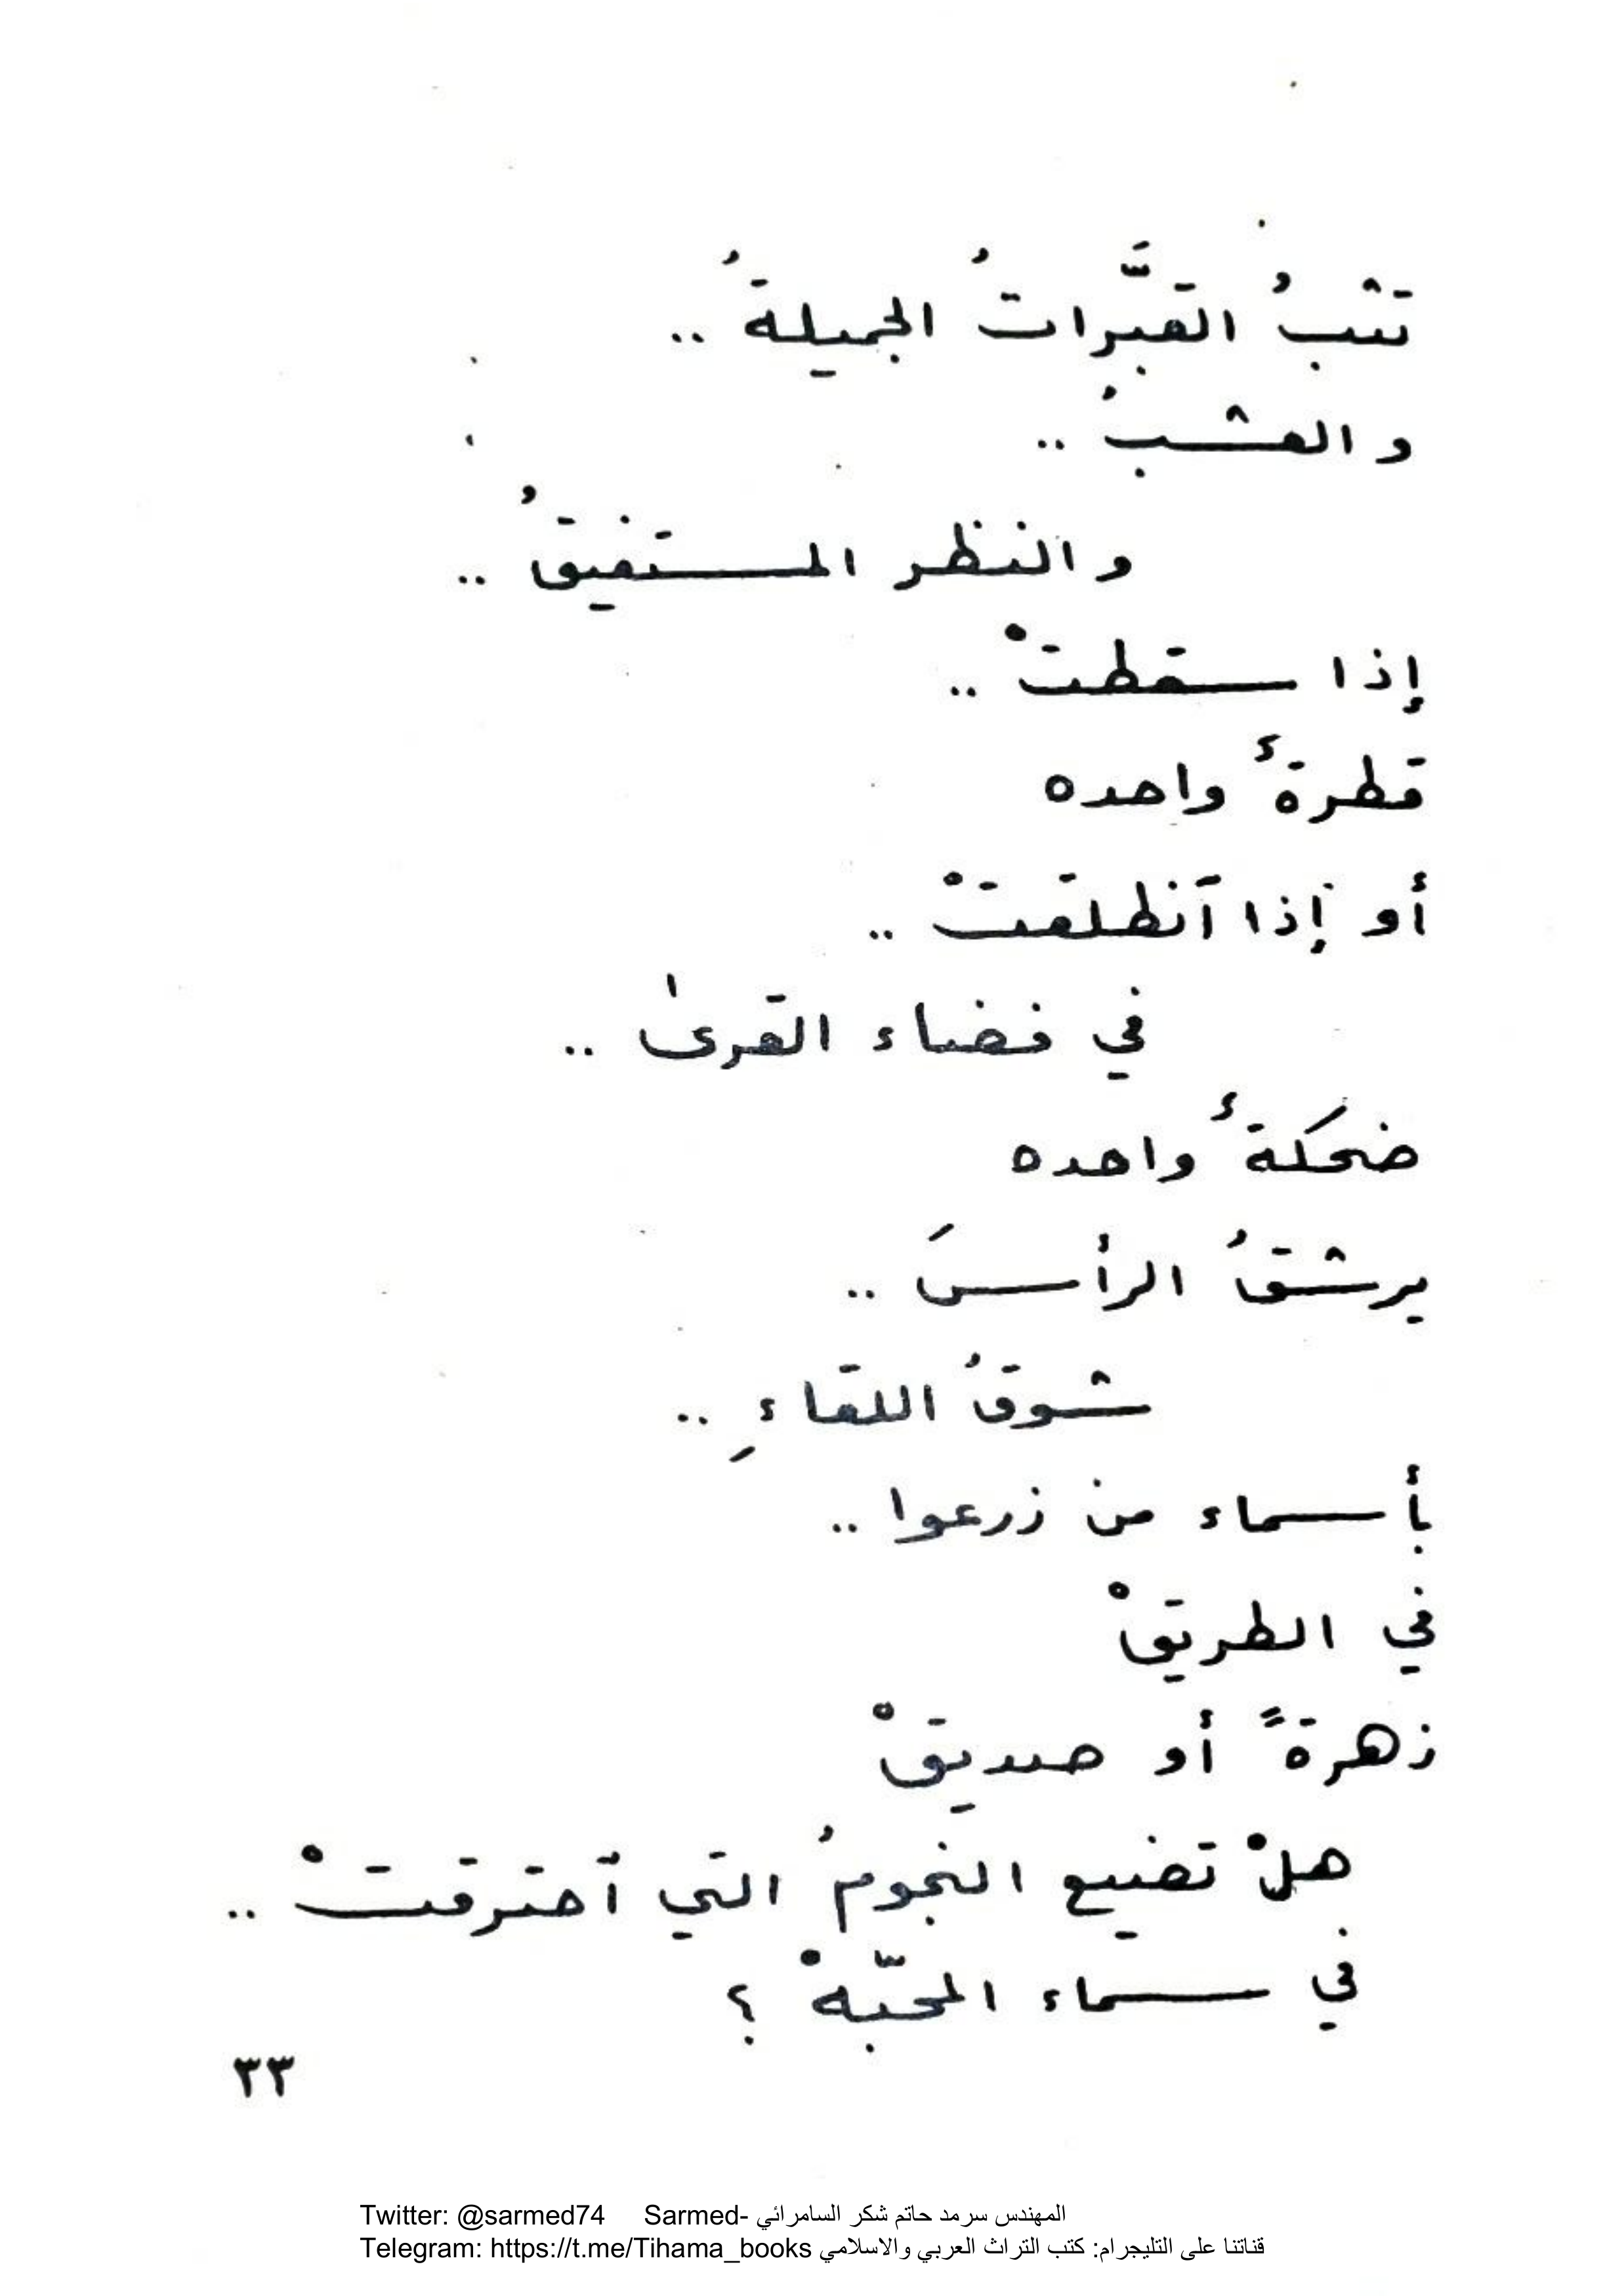 تثبُ القبَّراتُ الجميلةُ ..
والعشبُ ..
والنظر المستفيقُ ..
إذا سقطتْ ..
قطرةٌ واحده
أو إذا ٱنطلقتْ ..
في فضاء القرىٰ ..
ضحكةٌ واحده
يرشقُ الرأسَ ..
شوقُ اللقاءِ ..
بأسماء من زرعوا ..
في الطريقْ
زهرةً أو صديقْ
هلْ تضيع النجومُ التي ٱحترقتْ ..
في سماء المحبّهْ ؟
٣٣
Twitter: @sarmed74 Sarmed- المهندس سرمد حاتم شكر السامرائي
Telegram: https://t.me/Tihama_books قناتنا على التليجرام: كتب التراث العربي والاسلامي